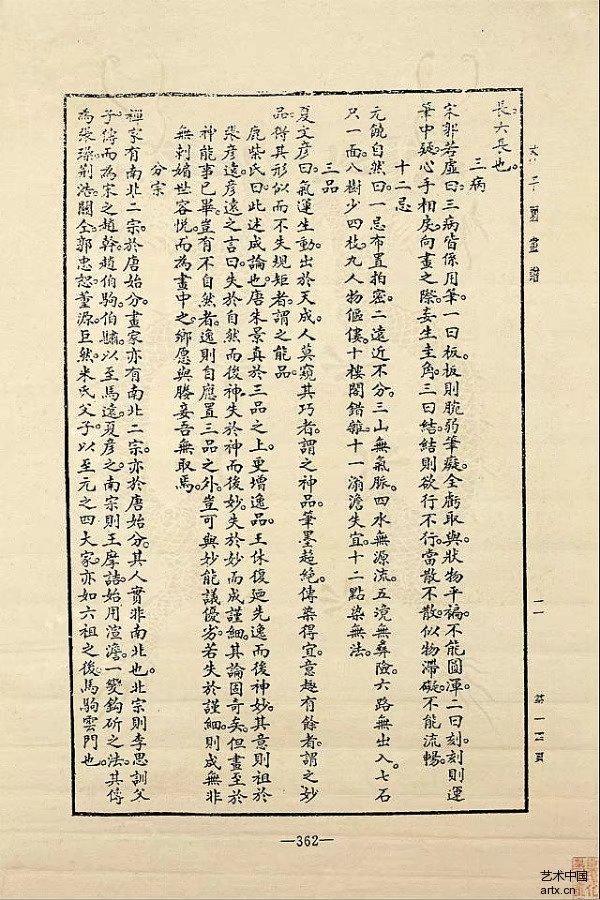 長六長也。
三病
宋郭若虛曰。三病皆係用筆。一曰板。板則腕弱筆癡。全虧取與。狀物平褊。不能圓渾。二曰刻。刻則運
筆中疑。心手相戾。向畫之際。妄生圭角。三曰結。結則欲行不行。當散不散。似物滯礙。不能流暢。
十二忌
元饒自然曰。一忌布置拍密。二遠近不分。三山無氣脈。四水無源流。五境無彝險。六路無出入。七石
只一面。八樹少四枝。九人物傴僂。十樓閣錯雜。十一滃澹失宜。十二點染無法。
三品
夏文彥曰。氣運生動。出於天成。人莫窺其巧者。謂之神品。筆墨超絕。傳染得宜。意趣有餘者。謂之妙
品。得其形似而不失規矩者。謂之能品。
鹿柴氏曰。此述成論也。唐朱景真於三品之上。更增逸品。王休復廼先逸而後神妙。其意則祖於
張彥遠。彥遠之言曰。失於自然而後神。失於神而後妙。失於妙而成謹細。其論固奇矣。但畫至於
神能事已畢。豈有不自然者。逸則自應置三品之外。豈可與妙能議優劣。若失於謹細。則成無非
無刺媚世容悅。而為畫中之鄉愿與媵妾。吾無取焉。
分宗
禪家有南北二宗。於唐始分。畫家亦有南北二宗。亦於唐始分。其人實非南北也。北宗則李思訓父
子。傳而為宋之趙幹。趙伯駒。伯驌。以至馬遠。夏彥之。南宗則王摩詰。始用渲澹。一變鈎斫之法。其傳
為張璪。荆浩。關仝。郭忠恕。董源。巨然。米氏父子。以至元之四大家。亦如六祖之後。馬駒雲門也。
—362—
艺术中国
artx.cn